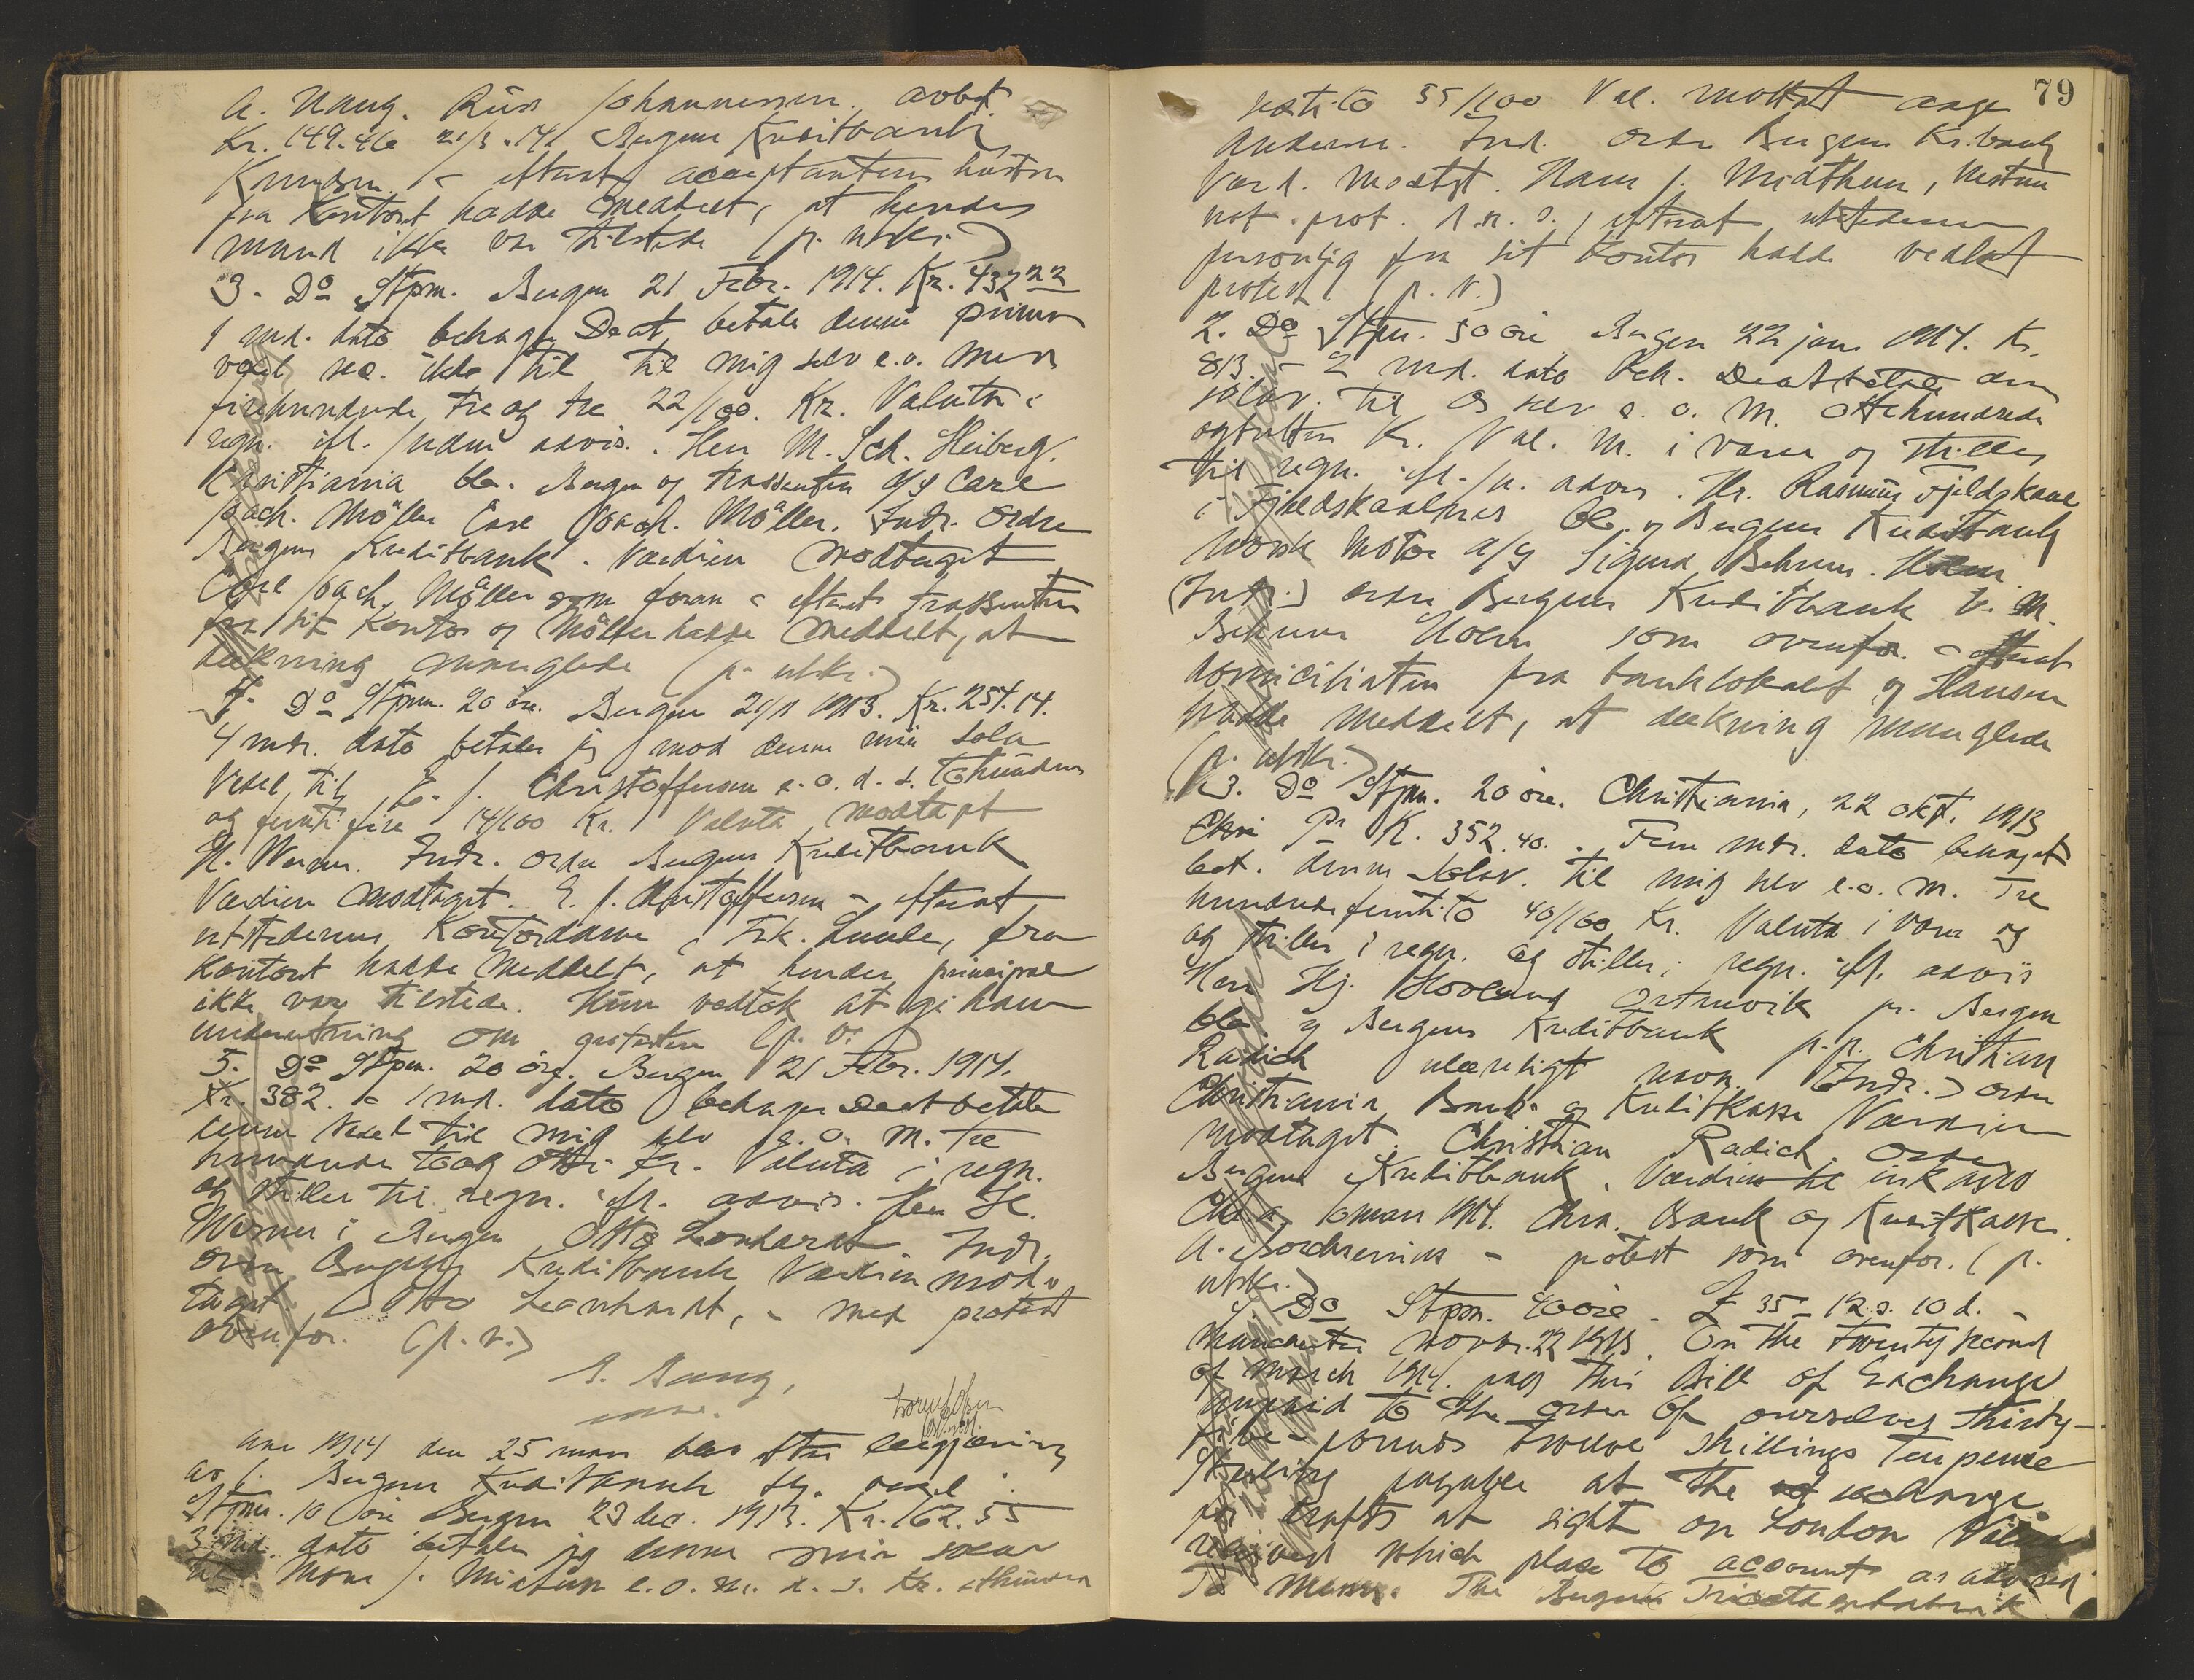 A. Haug. Russ Johannessen. avbet.
Kr. 149.46 21/3.14 Bergens Kreditbank
Knudsen - efterat acceptantens hustru
fra Kontoret hadde meddelt, at hendes
mand ikke var tilstede (p. utskr.)
3. Do Stpm. Bergen 21 Febr. 1914. Kr. 432 22
1 md. dato behager De at betale denne prima
vexel sec. ikke til mig selv e.o. med
firehundrede tre og tre 22/100. Kr. Valuta i
regn. ifl. uden advis. Herr M. Sch. Heiberg.
Kristiania bet. Bergen og trassenten A/S Carl
Joach. Möller Carl Joach. Möller. Indr. Ordre
Bergens Kreditbank. Værdien modtaget
Carl Joach. Möller som foran - efterat trassenten
fra sit Kontor og Möller hadde meddelt, at
dekning manglede (p. utskr.)
4. Do Stpm. 20 öre. Bergen 21/11 1913. Kr. 254.14.
4 mdr. dato betaler jeg mod denne min sola
Vexel til E. J. Christoffersen e.o. d. s. Tohundrede
og femti fire 14/100 Kr. Valuta modtagt
H. Werner. Indr. ordre Bergens Kreditbank
Værdien modtaget. E. J. Christoffersen - efterat
utstederens Kontordame, Frk. Lunde, fra
Kontoret hadde meddelt, at hendes principal
ikke var tilstede. Hun vedtok at gi ham
underretning om protesten (p. v.)
5. Do Stpm. 20 öre. Bergen 21 Febr. 1914.
Kr. 382. - 1 md. dato behager De at betale
denne Vexel til mig selv e. o. m. Tre
hundrede to og otti Kr. Valuta i regn.
og stiller til regn. ifl. advis. Herr H.
Werner i Bergen Otto Leonhardt Indr.
ordre Bergens Kreditbank Værdien mod-
taget. Otto Leonhardt, - med protest
ovenfor. (p. v.)
Aar 1914 den 25 mars blev efter begjæring
av f. Bergens Kreditbank flg. vexel:
Stpm. 10 öre Bergen 23 dec. 1913. Kr. 162.55
3 md. dato betaler jeg denne min sola
til Hans J. Midthun e. o. m. d. s. Kr. ethundre
79
sekstito 55/100 Val. mottat Aage
Andersen. Ind. Ordre Bergens Kr.bank
Værd. modtgt. Hans J. Midthun, Nestun
not. prot. d.n. s., efterat utstederen
personlig fra sit Kontor hadde vedtat
protest. (p. v.)
2. Do Stpm. 50 öre Bergen 22 jan. 1914. Kr.
813. - 2 md. dato beh. De at betale denne
solav. til Os selv e. o. M. Ottehundrede
ogtretten Kr. Val. M. i varer og stilles
til regn. ifl. /u. advis. Hr. Rasmus Fjeldskaal
i Fjeldskaalnes bet. og Bergens Kreditbank
Norsk Motor A/S Sigurd Behrens. Holm
(Indr.) ordre Bergens Kreditbank V. M.
Behrens Holm som ovenfor. - efterat
domiciliaten fra banklokalet og Hansen
hadde meddelt, at dekning manglede
(p. utskr.)
3. Do Stpm. 20 öre. Christiania, 22 okt. 1913
Pr K. 352.40. Fem mdr. dato behaget
bet. denne solav. til mig selv e.o. m. Tre
hundredefemtito 40/100 Kr. Valuta i varer og
og stilles i regn. og stilles i regn. ifl. advis
Herr Hj. Hovland Ostrevik pr. Bergen
bet. og Bergens Kreditbank p.p. Christian
Radich ulæseligt navn. (Indr.) ordre
Christiania Bank og Kreditkasse Værdien
modtaget. Christian Radich. Ordre
Bergens Kreditbank. Værdien til inkasso
Chra. 10 mars 1914. Chra. Bank og Kreditkasse.
A. Borchrevink - protest som ovenfor. (p.
utskr.)
4 Do Stpm. 40 öre - £ 35 - 12 s. 10 d. -
Manchester Novbr. 22 1913. On the Twentysecond
of March 1914. pay this Bill of Exchange
unpaid to the order of ourselves Thirty-
five-pounds twelve shillings Ten pence
Sterling payable at the exchange
for drafts at sight on London Value
received which place to account as advised
To Messrs. The Bergens Tricotagefabrik